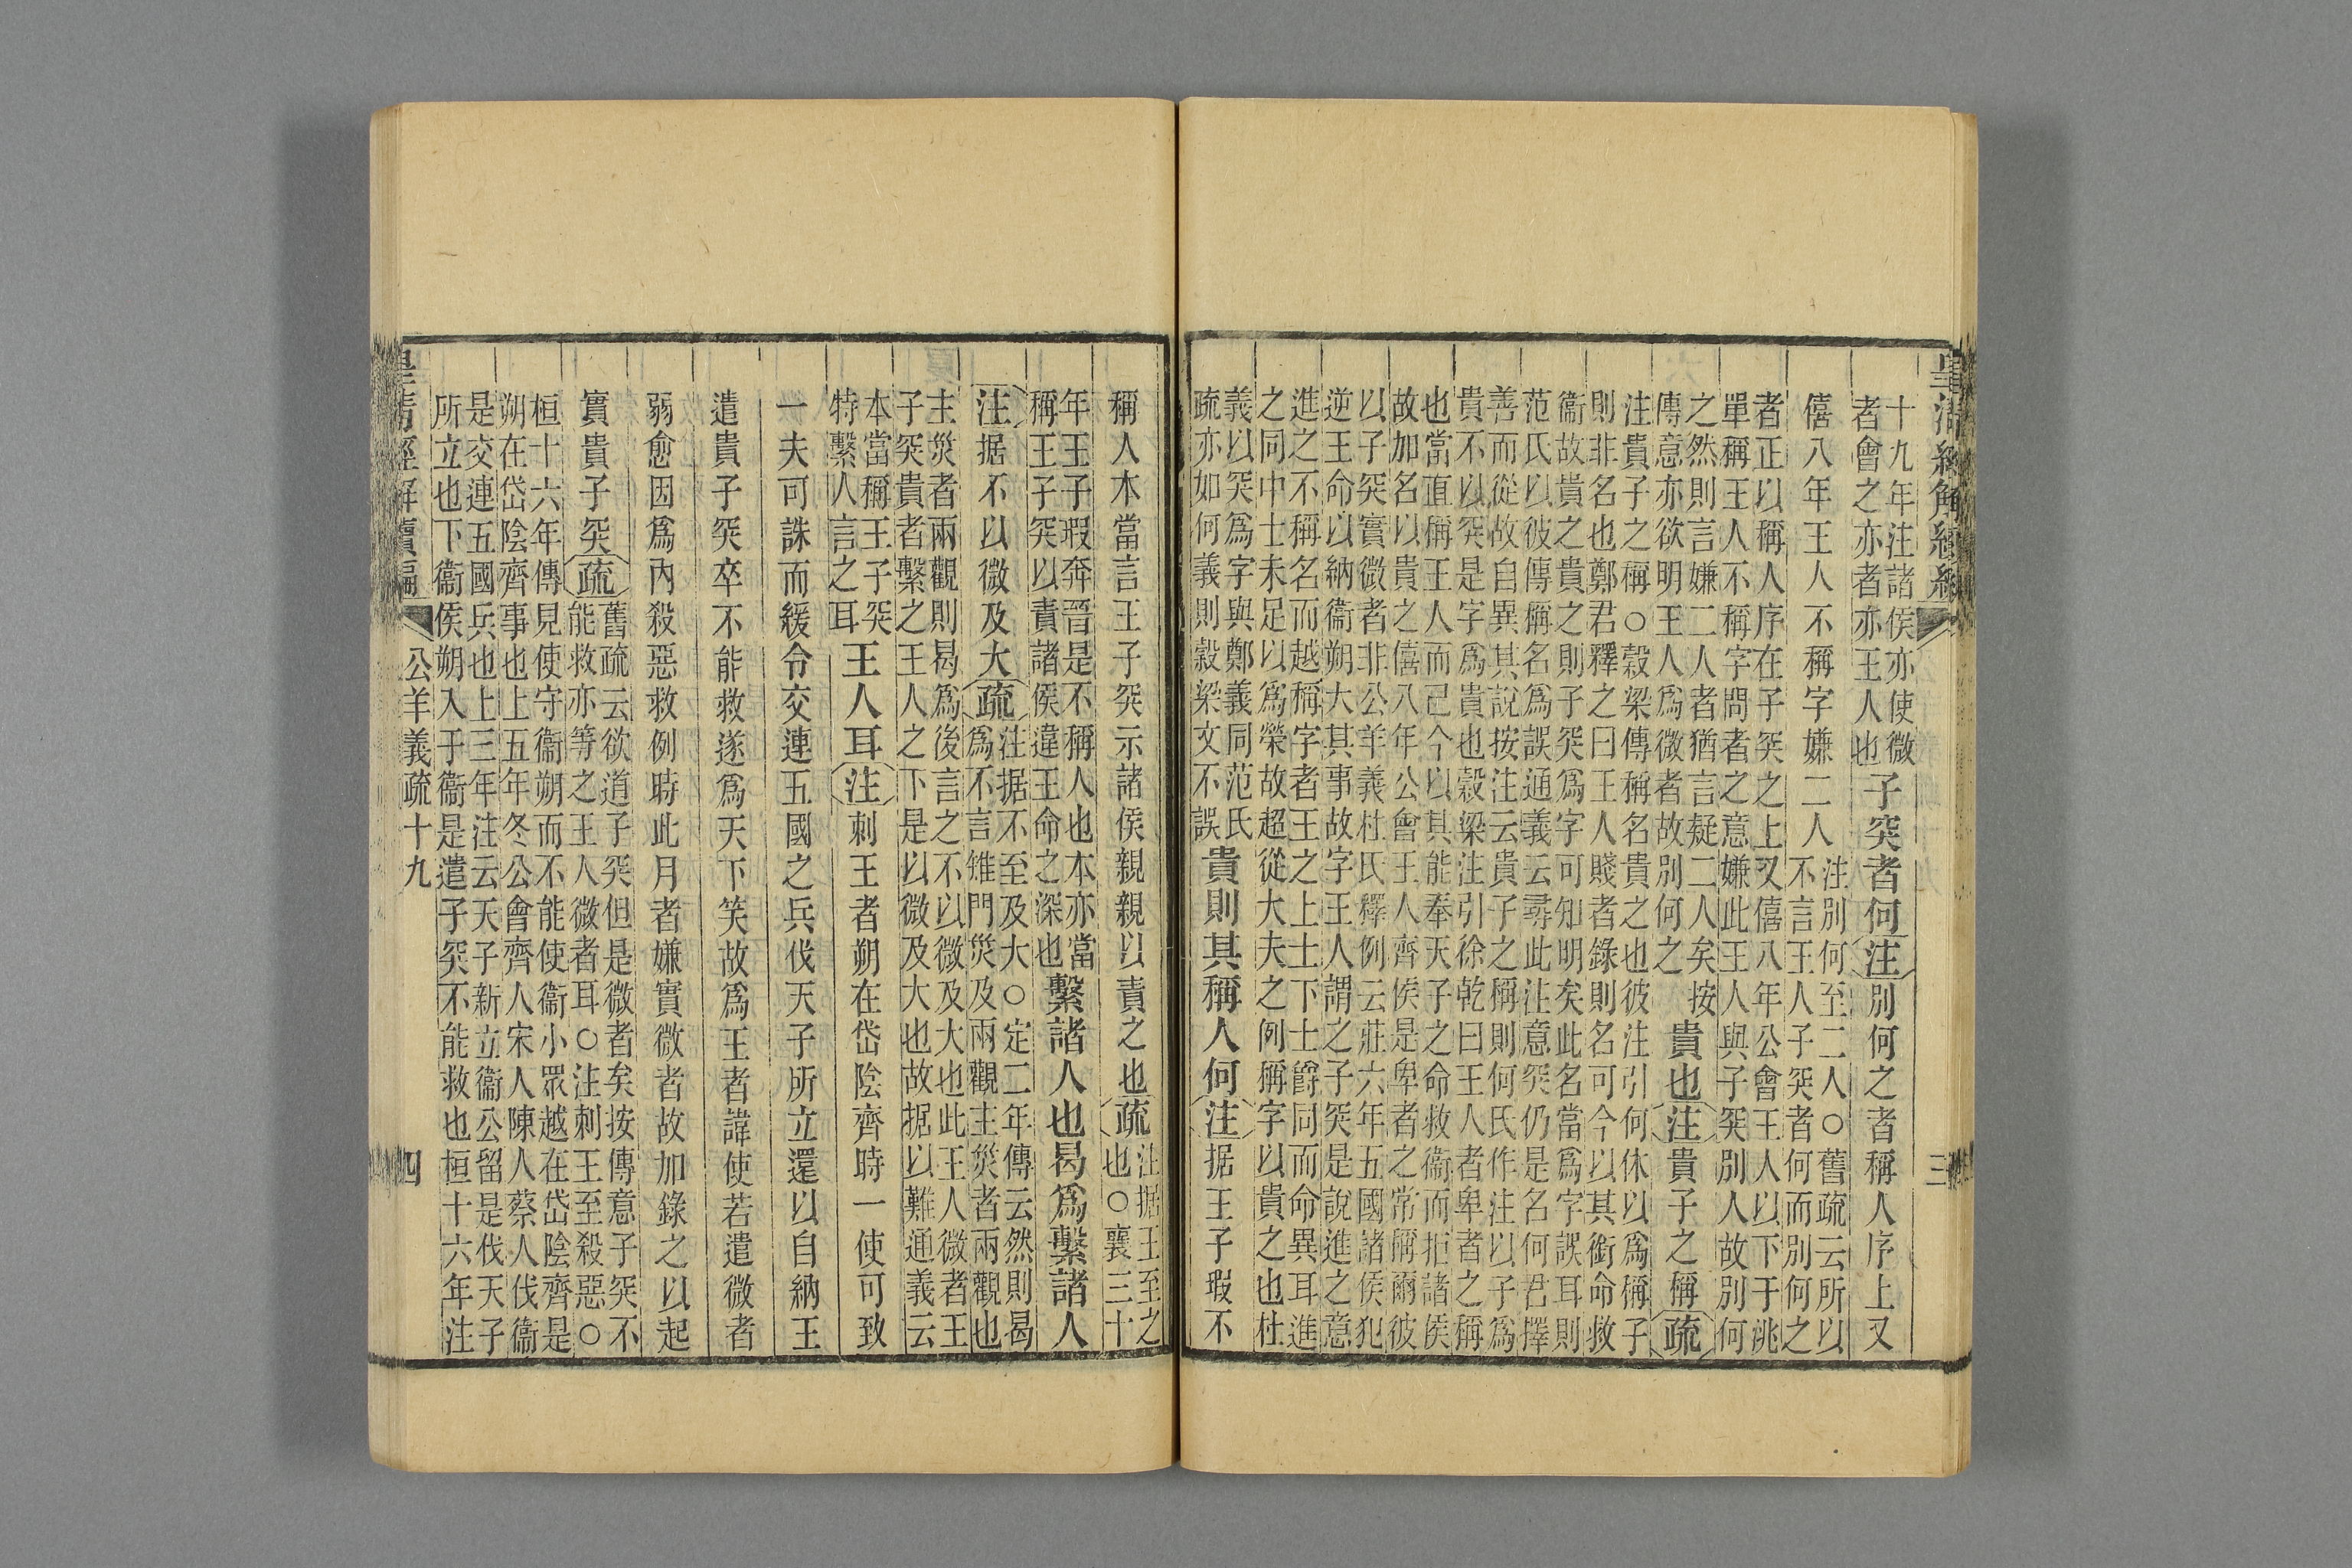 皇清經解續編 三
十九年注諸侯亦使微
者會之亦者亦王人也
子突者何注別何之者稱人序上又
僖八年王人不稱字嫌二人
注別何至二人○舊疏云所以
不言王人子突者何而別何之
者正以稱人序在子突之上又僖八年公會王人以下于洮
單稱王人不稱字問者之意嫌此王人與子突別人故別何
之然則言嫌二人者猶言疑二人矣按
傳意亦欲明王人爲微者故別何之
貴也注貴子之稱疏
注貴子之稱○穀梁傳稱名貴之也彼注引何休以爲稱子
則非名也鄭君釋之曰王人賤者錄則名可今以其銜命救
衞故貴之貴之則子突爲字可知明矣此名當爲字誤耳則
范氏以彼傳稱名爲誤通義云尋此注意突仍是名何君擇
善而從故自異其說按注云貴子之稱則何氏作注以子爲
貴不以突是字爲貴也穀梁注引徐乾曰王人者卑者之稱
也當直稱王人而已今以其能奉天子之命救衞而拒諸侯
故加名以貴之僖八年公會王人齊侯是卑者之常稱爾彼
以子突實微者非公羊義杜氏釋例云莊六年五國諸侯犯
逆王命以納衞朔大其事故字王人謂之子突是說進之意
進之不稱名而越稱字者王之上士下士爵同而命異耳進
之同中士未足以爲榮故超從大夫之例稱字以貴之也杜
義以突爲字與鄭義同范氏
疏亦如何義則穀梁文不誤
貴則其稱人何注据王子瑕不
稱人本當言王子突示諸侯親親以責之也疏
注据王至之
也○襄三十
年王子瑕奔晉是不稱人也本亦當
稱王子突以責諸侯違王命之深也
繫諸人也曷爲繫諸人
注据不以微及大疏
注据不至及大○定二年傳云然則曷
爲不言雉門災及兩觀主災者兩觀也
主災者兩觀則曷爲後言之不以微及大也此王人微者王
子突貴者繫之王人之下是以微及大也故据以難通義云
本當稱王子突
特繫人言之耳
王人耳注刺王者朔在岱陰齊時一使可致
一夫可誅而緩令交連五國之兵伐天子所立還以自納王
遣貴子突卒不能救遂爲天下笑故爲王者諱使若遣微者
弱愈因爲內殺惡救例時此月者嫌實微者故加錄之以起
實貴子突疏
舊疏云欲道子突但是微者矣按傳意子突不
能救亦等之王人微者耳○注刺王至殺惡○
桓十六年傳見使守衞朔而不能使衞小眾越在岱陰齊是
朔在岱陰齊事也上五年冬公會齊人宋人陳人蔡人伐衞
是交連五國兵也上三年注云天子新立衞公留是伐天子
所立也下衞侯朔入于衞是遣子突不能救也桓十六年注
皇清經解續編 公羊義疏十九 四